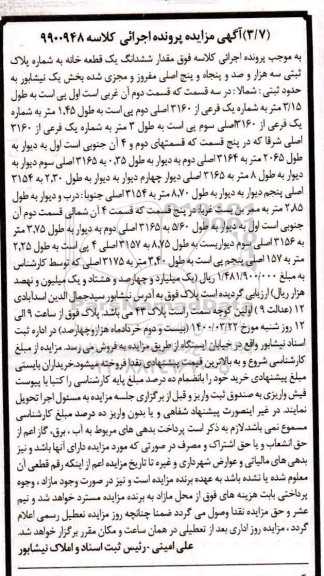 (۳/۷)آگهی مزایده پرونده اجرائی کلاسه ۹۹۰۰۹۴۸
به موجب پرونده اجرائی کلاسه فوق مقدار ششدانگ یک قطعه خانه به شماره پلاک
ثبتی سه هزار و صد و پنجاه و پنج اصلی مفروز و مجزی شده بخش یک نیشابور به
حدود ثبتی : شمالا : در سه قسمت که قسمت دوم آن غربی است اول پی است به طول
۲/۱۵ متر به شماره یک فرعی از ۳۱۶۰ اصلی دوم پی است به طول ۱,۴۵ متر به شماره
یک فرعی از ۳۱۶۰اصلی سوم پی است به طول ۳ متر به شماره یک فرعی از ۳۱۶۰
اصلی شرقا که در پنج قسمت که قسمتهای دوم و ۴ آن جنوبی است اول به دیوار به
طول ۲۰۶۵ متر به ۳۱۶۴ اصلی دوم به دیوار به طول ۰,۳۵ به ۳۱۶۵ اصلی سوم دیوار به
دیوار به طول ۸ متر به ۳۱۶۵ اصلی دیوار چهارم دیوار به طول ۲,۳۰ به ۳۱۵۴
اصلی پنجم دیوار به دیوار به طول ۸,۷۰ متر به ۳۱۵۴ اصلی جنوبا : درب و دیوار به طول
۲,۸۵ متر به ممر بن بست غربا در پنج قسمت که قسمت ۴ آن شمالی قسمت دوم آن
جنوبی است اول به دیوار به طول ۵/۶۰ به ۳۱۶۵ اصلی دوم به دیوار به طول ۳,۷۵ متر
به ۳۱۵۶ اصلی سوم دیواریست به طول ۸,۷۵ به ۳۱۵۷ اصلی ۴ پی است به طول ۲,۲۵
متر به ۱۵۷ اصلی پنجم پی است به طول ۳,۴۰ متر به ۳۱۷۵ اصلی که توسط کارشناس
به مبلغ ۱/۴۸۱/۹۰۰/۰۰۰ ریال (یک میلیارد و چهارصد و هشتاد و یک میلیون و نهصد
هزار ریال) ارزیابی گردیده است پلاک فوق به آدرس نیشابور سیدجمال الدین اسدآبادی
۱۲ (عدالت ۹ ) اولین کوچه سمت راست پلاک ۲۳ می باشد. پلاک فوق از ساعت ۹ الی
۱۲ روز شنبه مورخ ۱۴۰۰/۰۳/۲۲ (بیست و دوم خردادماه هزاروچهارصد) در اداره ثبت
اسناد نیشابور واقع در خیابان ایستگاه از طریق مزایده به فروش می رسد. مزایده از مبلغ
کارشناسی شروع و به بالاترین قیمت پیشنهادی نقدا فروخته میشود.خریداران بایستی
مبلغ پیشنهادی خرید خود را بانضمام ده درصد مبلغ پایه کارشناسی را کتبا با پیوست
فیش واریزی به صندوق ثبت واریز و قبل از برگزاری جلسه مزایده به مسئول اجرا تحویل
نمایند. در غیر اینصورت پیشنهاد شفاهی و یا بدون واریز ده درصد مبلغ کارشناسی
مسموع نمی باشد.لازم به ذکر است پرداخت بدهی های مربوط به آب ، برق، گاز اعم از
حق انشعاب و یا حق اشتراک و مصرف در صورتی که مورد مزایده دارای آنها باشد و نیز
بدهی های مالیاتی و عوارض شهرداری و غیره تا تاریخ مزایده اعم از اینکه رقم قطعی آن
معلوم شده یا نشده باشد به عهده برنده مزایده است و نیز در صورت وجود مازاد ، وجوه
پرداختی بابت هزینه های فوق از محل مازاد به برنده مزایده مسترد خواهد شد و نیم
عشر و حق مزایده نقدا وصول می گردد ضمنا چنانچه روز مزایده تعطیل رسمی اعلام
گردد ، مزایده روز اداری بعد از تعطیلی در همان ساعت و مکان مقرر برگزار خواهد شد.
علی امینی - رئیس ثبت اسناد و املاک نیشابور